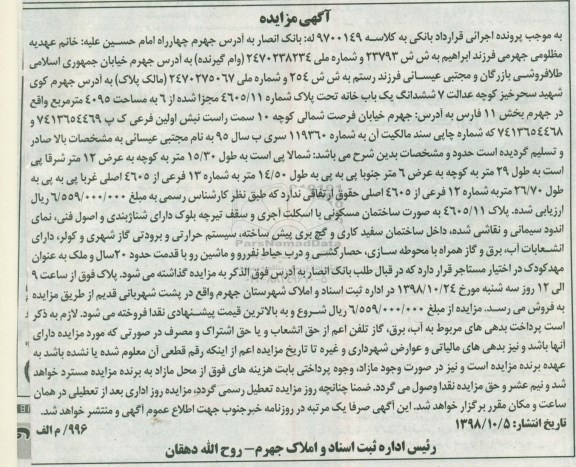 آگهی مزایده
به موجب پرونده اجرائی قرارداد بانکی به کلاسه ۹۷۰۰۱۴۹ له: بانک انصار به آدرس جهرم چهارراه امام حسین علیه: خانم عهدیه
مظلومی جهرمی فرزند ابراهیم به ش ش ۲۳۷۹۳ و شماره ملی ۲۴۷۰۲۳۸۲۳۴ (وام گیرنده) به آدرس جهرم خیابان جمهوری اسلامی
طلافروشی بازرگان و مجتبی عیسائی فرزند رستم به ش ش ۲۵۴ و شماره ملی ۲۴۷۰۲۷۵۰۶۷ (مالک پلاک) به آدرس جهرم کوی
شهید سحرخیز کوچه عدالت ۷ ششدانگ یک باب خانه تحت پلاک شماره ۴۶۰۵/۱۱ مجزا شده از ۶ به مساحت ۴۰۹۵ مترمربع واقع
در جهرم بخش ۱۱ فارس به آدرس: جهرم خیابان فرصت شمالی کوچه ۱۰ سمت راست نبش اولین فرعی ک پ ۷۴۱۳۶۵۴۴۶۹ و
۷۴۱۳۶۵۴۴۶۸ که شماره چاپی سند مالکیت آن به شماره ۱۱۹۳۶۰ سری ب سال ۹۵ به نام مجتبی عیسائی به مشخصات بالا صادر
و تسلیم گردیده است حدود و مشخصات بدین شرح می باشد: شمالا پی است به طول ۱۵/۳۰ متر به کوچه به عرض ۱۲ متر شرقا پی
است به طول ۲۹ متر به کوچه به عرض ۶ متر جنوبا پی به پی به طول ۱۴/۵۰ متر به شماره ۱۳ فرعی از ۴۶۰۵ اصلی غربا پی به پی به
طول ۲۶/۷۰ متربه شماره ۱۲ فرعی از ۴۶۰۵ اصلی حقوق ارتفاقی ندارد که طبق نظر کارشناس رسمی به مبلغ ۶/۵۵۹/۰۰۰/۰۰۰ ریال
ارزیابی شده. پلاک ۴۶۰۵/۱۱ به صورت ساختمان مسکونی با اسکلت آجری و سقف تیرچه بلوک دارای شناژبندی و اصول فنی، نمای
اندود سیمانی و نقاشی شده، داخل ساختمان سفید کاری و گچ بری پیش ساخته، سیستم حرارتی و برودتی گاز شهری و کولر، دارای
انشعابات آب، برق و گاز همراه با محوطه سازی، حصارکشی و درب حیاط نفررو و ماشین رو با قدمت حدود ۲۰سال و ملک به عنوان
مهدکودک در اختیار مستاجر قرار دارد که در قبال طلب بانک انصار به آدرس فوق الذکر به مزایده گذاشته می شود. پلاک فوق از ساعت ۹
الی ۱۲ روز سه شنبه مورخ ۱۳۹۸/۱۰/۲۴ در اداره ثبت اسناد و املاک شهرستان جهرم واقع در پشت شهربانی قدیم از طریق مزایده
به فروش می رسد. مزایده از مبلغ ۶/۵۵۹/۰۰۰/۰۰۰ ریال شروع و به بالاترین قیمت پیشنهادی نقدا فروخته می شود. لازم به ذکر
است پرداخت بدهی های مربوط به آب، برق، گاز تلفن اعم از حق انشعاب و یا حق اشتراک و مصرف در صورتی که مورد مزایده دارای
آنها باشد و نیز بدهی های مالیاتی و عوارض شهرداری و غیره تا تاریخ مزایده اعم از اینکه رقم قطعی آن معلوم شده یا نشده باشد به
عهده برنده مزایده است و نیز در صورت وجود مازاد، وجوه پرداختی بابت هزینه های فوق از محل مازاد به برنده مزایده مسترد خواهد
شد و نیم عشر و حق مزایده نقدا وصول می گردد. ضمنا چنانچه روز مزایده تعطیل رسمی گردد، مزایده روز اداری بعد از تعطیلی در همان
ساعت و مکان مقرر برگزار خواهد شد. این آگهی صرفا یک مرتبه در روزنامه خبرجنوب جهت اطلاع عموم آگهی و منتشر خواهد شد.
تاریخ انتشار: ۱۳۹۸/۱۰/۵
۹۹۶/ م الف
رئیس اداره ثبت اسناد و املاک جهرم – روح الله دهقان